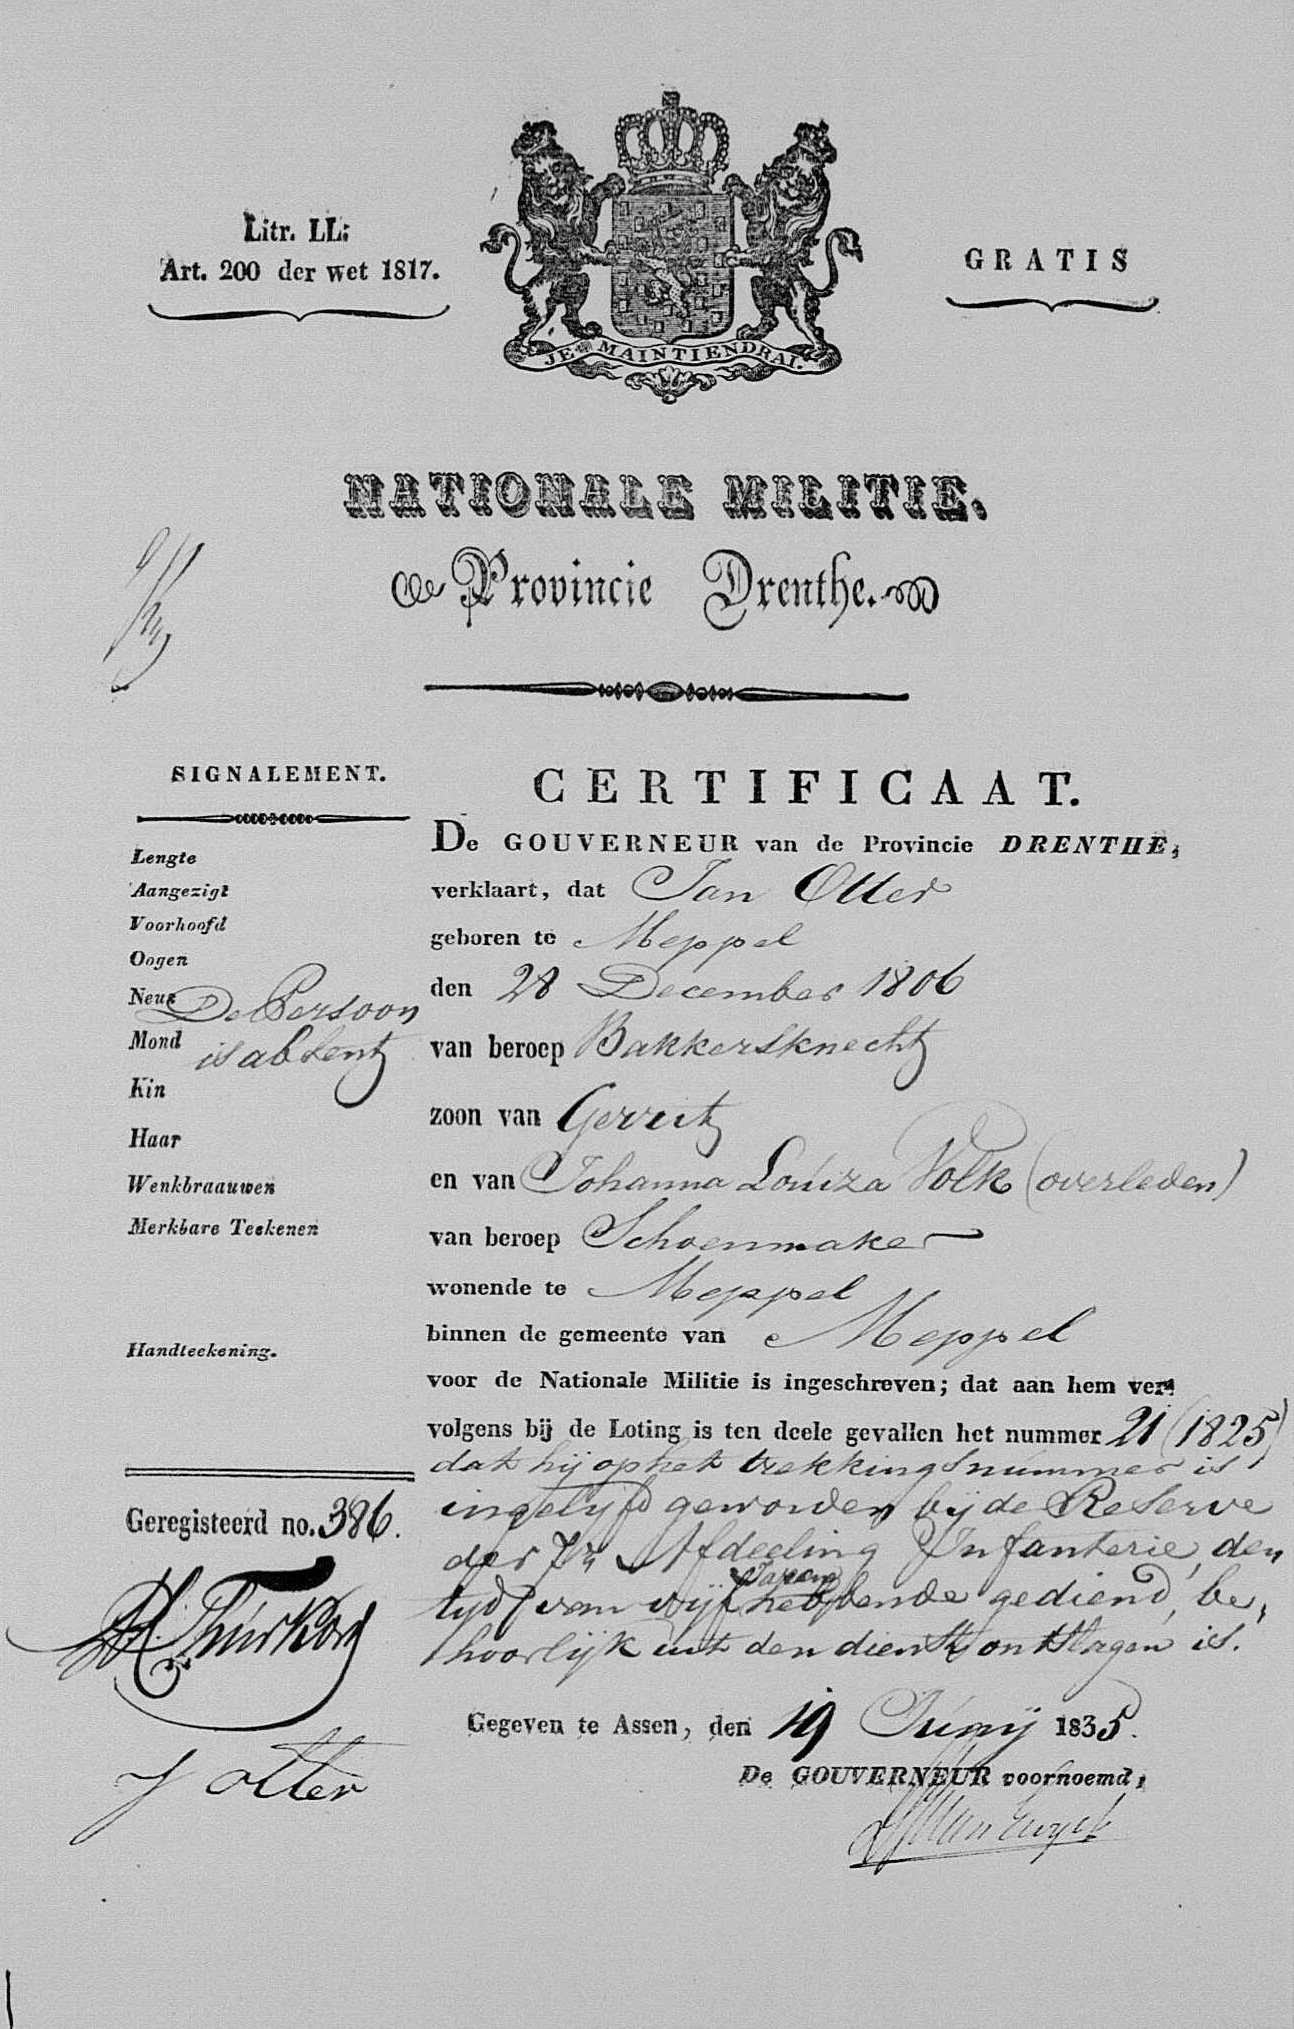 Litr. LL:
Art. 200 der wet 1817.
GRATIS
JE MAINTIENDRAI.
NATIONALE MILITIE.
Provincie Drenthe.
SIGNALEMENT.
Lengte
Aangezigt
Voorhoofd
Oogen
Neus De Persoon
Mond is absent
Kin
Haar
Wenkbraauwen
Merkbare Teekenen
Handteekening.
Geregisteerd no. 386.
J Otter
CERTIFICAAT.
De GOUVERNEUR van de Provincie DRENTHE,
verklaart, dat Jan Otter
geboren te Meppel
den 28 December 1806
van beroep Bakkersknecht
zoon van Gerrit
en van Johanna Louiza Volk (overleden)
van beroep Schoenmaker
wonende te Meppel
binnen de gemeente van Meppel
voor de Nationale Militie is ingeschreven; dat aan hem ver-
volgens bij de Loting is ten deele gevallen het nummer 21 (1825)
dat hij op het trekkingsnummer is
ingelijfd geworden bij de Reserve
der 7e Afdeeling Infanterie, den
tijd van vijf Jaren hebbende gediend, be,
hoorlijk uit den dienst ontslagen is.
Gegeven te Assen, den 19 Junij 1835.
De GOUVERNEUR voornoemd,